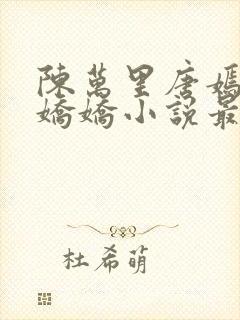 陳萬里唐嫣
嬌嬌小說最
杜希萌